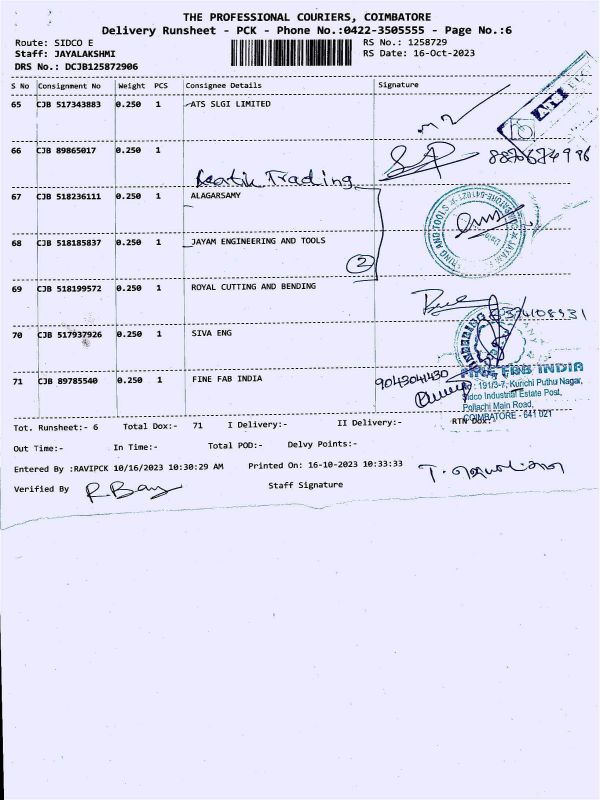 THE PROFESSIONAL COURIERS, COIMBATORE
Delivery Runsheet - PCK - Phone No.:0422-3505555 - Page No.:6
Route: SIDCO E RS No.: 1258729
Staff: JAYALAKSHMI RS Date: 16-Oct-2023
DRS No.: DCJB125872906
S No Consignment No Weight PCS Consignee Details Signature
65 CJB 517343883 0.250 1 ATS SLGI LIMITED
66 CJB 89865017 0.250 1
Trading
67 CJB 518236111 0.250 1 ALAGARSAMY
68 CJB 518185837 0.250 1 JAYAM ENGINEERING AND TOOLS
2
69 CJB 518199572 0.250 1 ROYAL CUTTING AND BENDING
70 CJB 517937926 0.250 1 SIVA ENG
71 CJB 89785540 0.250 1 FINE FAB INDIA 9043041430
FINE FAB INDIA
191/3-7, Kurichi Puthu Nagar,
Sidco Industrial Estate Post,
Pollachi Main Road,
COIMBATORE - 641 021
Tot. Runsheet:- 6 Total Dox:- 71 I Delivery:- II Delivery:- RTN Dox:-
Out Time:- In Time:- Total POD:- Delvy Points:-
Entered By :RAVIPCK 10/16/2023 10:30:29 AM Printed On: 16-10-2023 10:33:33
Verified By Staff Signature